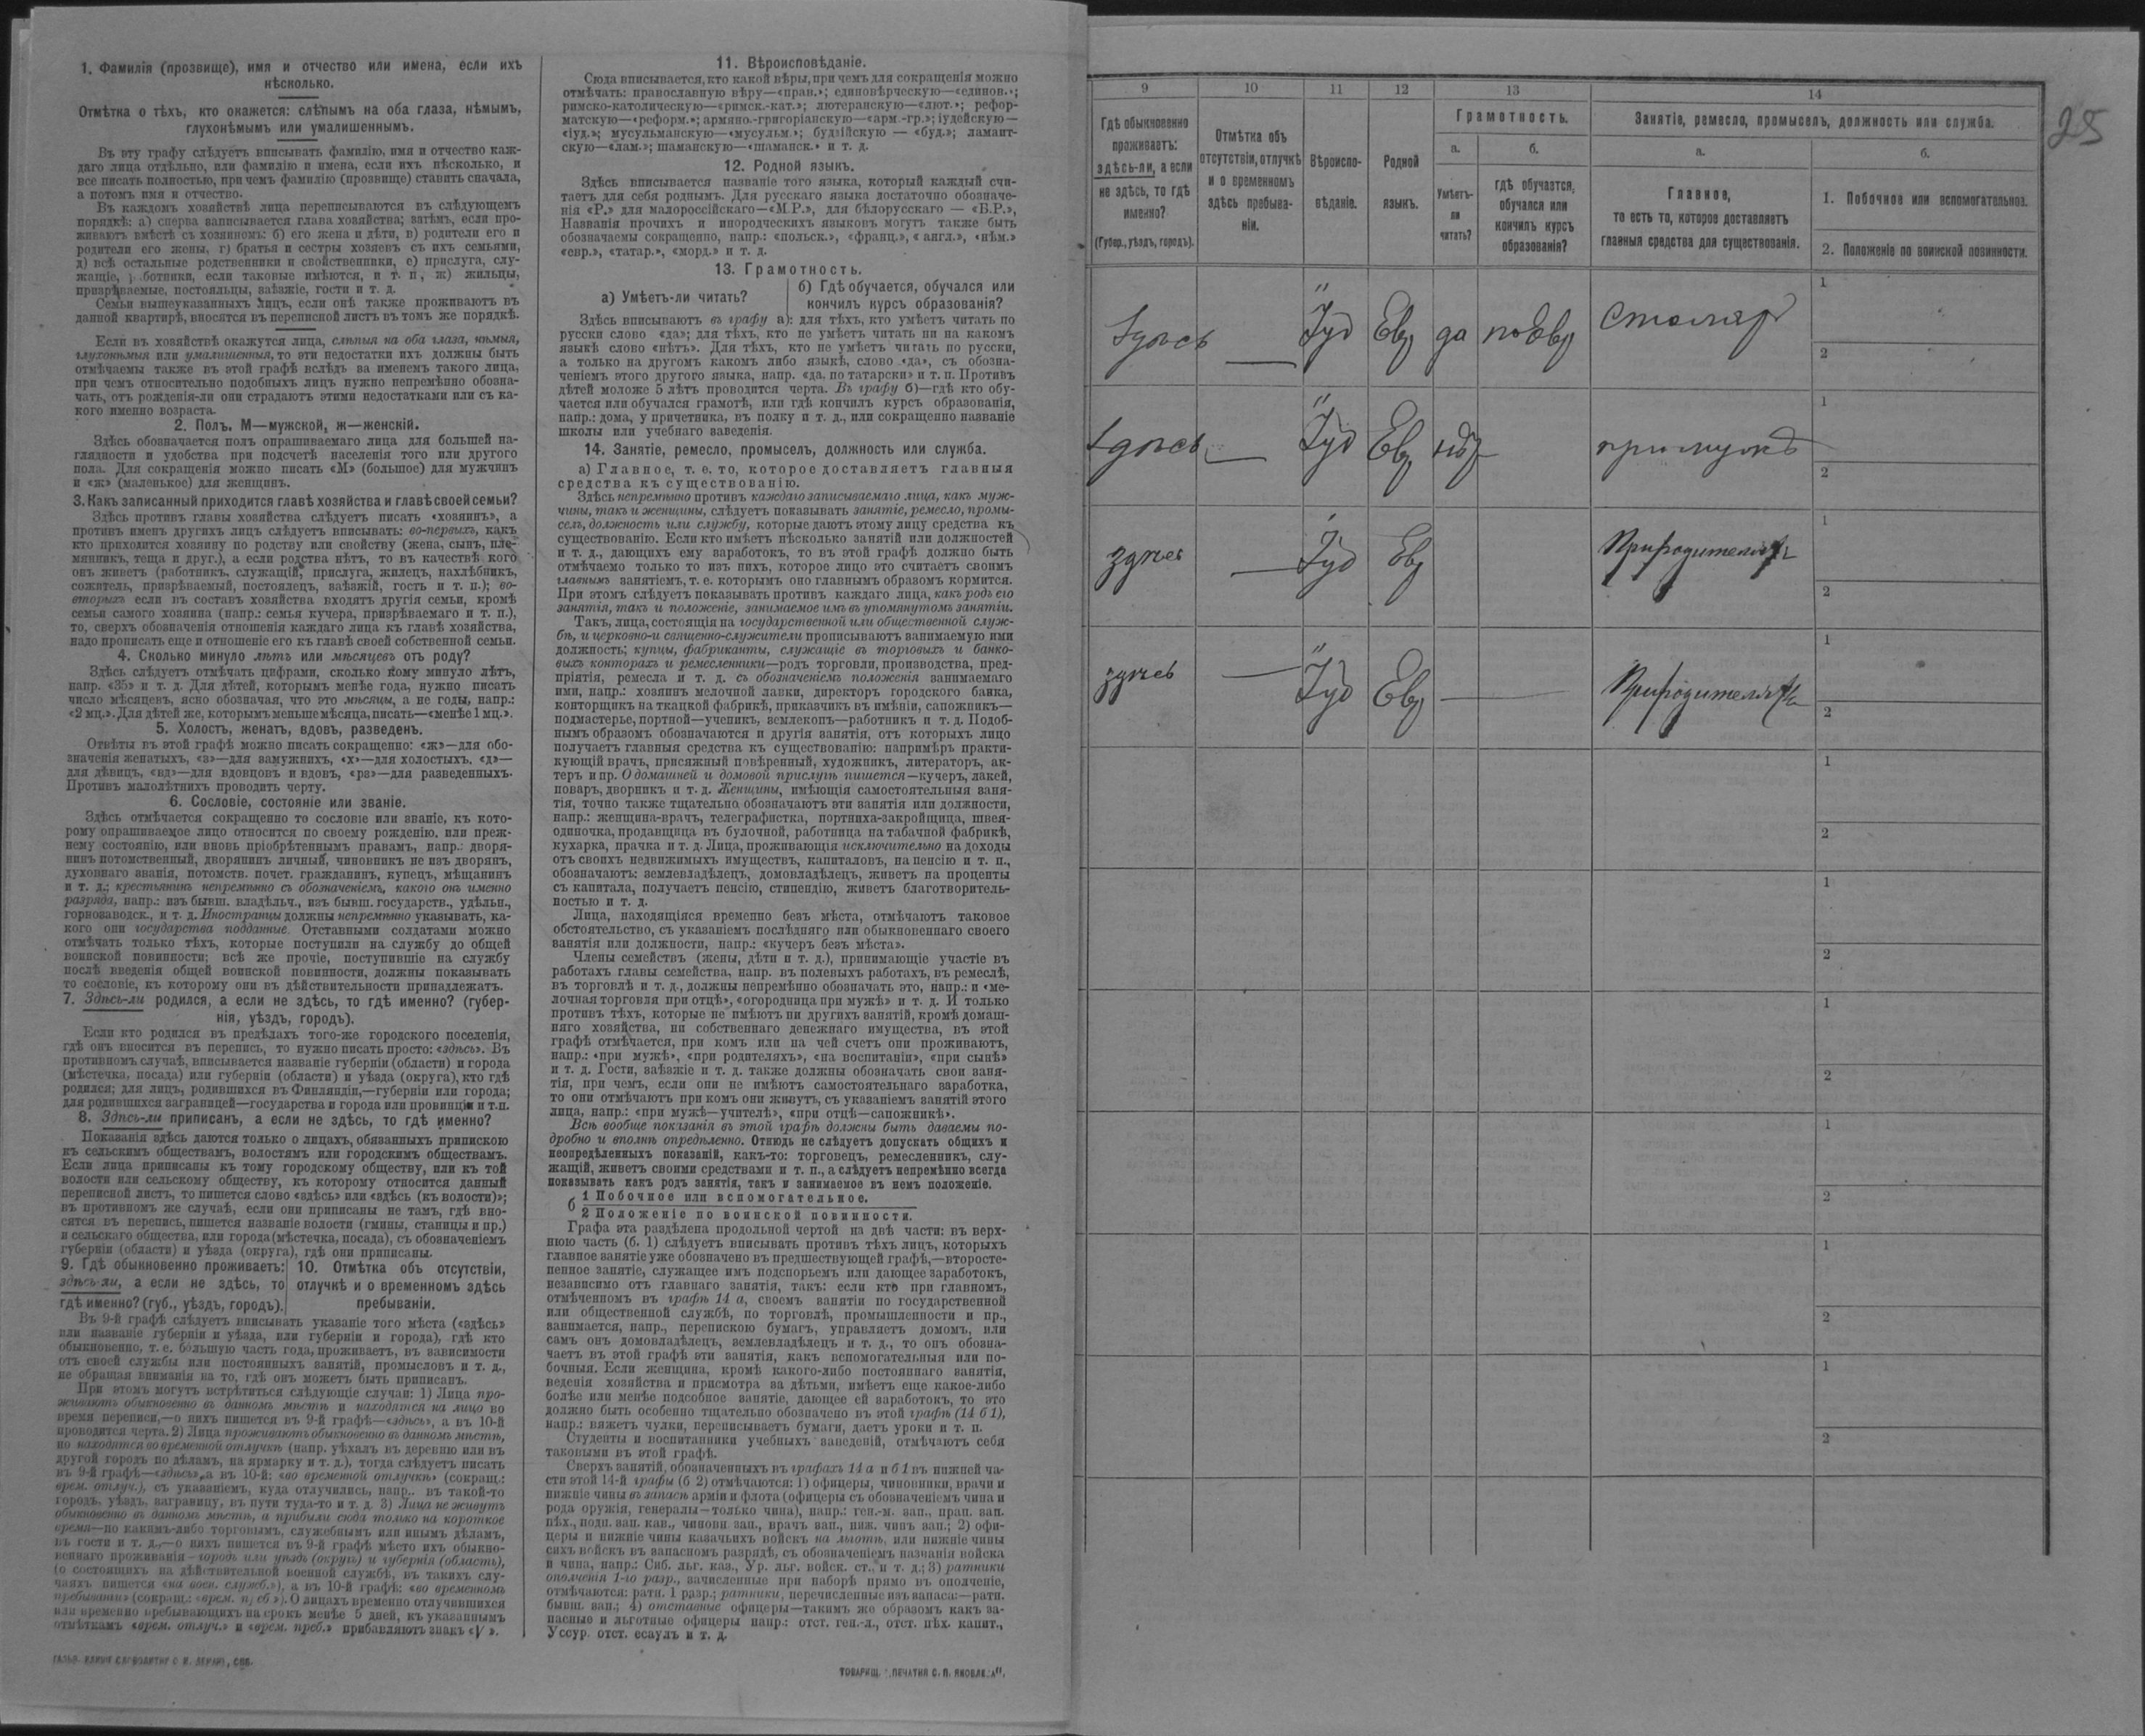 1. Фамилія (прозвище), имя и отчество или имена, если ихъ
нѣсколько.
Отмѣтка о тѣхъ, кто окажется: слѣпымъ на оба глаза, нѣмымъ,
глухонѣмымъ или умалишеннымъ.
Въ эту графу слѣдуетъ вписывать фамилію, имя и отчество каж-
даго лица отдѣльно, или фамилію и имена, если ихъ нѣсколько, и
все писать полностью, при чемъ фамилію (прозвище) ставить сначала,
а потомъ имя и отчество.
Въ каждомъ хозяйствѣ лица переписываются въ слѣдующемъ
порядкѣ: а) сперва записывается глава хозяйства; затѣмъ, если про-
живаютъ вмѣстѣ съ хозяиномъ: б) его жена и дѣти, в) родители его и
родители его жены, г) братья и сестры хозяевъ съ ихъ семьями,
д) всѣ остальные родственники и свойственники, е) прислуга, слу-
жащіе, работники, если таковые имѣются, и т. п, ж) жильцы,
призрѣваемые, постояльцы, заѣзжіе, гости и т. д.
Семьи вышеуказанныхъ лицъ, если онѣ также проживаютъ въ
данной квартирѣ, вносятся въ переписной листъ въ томъ же порядкѣ.
Если въ хозяйствѣ окажутся лица, слѣпыя на оба глаза, нѣмыя,
глухонѣмыя или умалишенныя, то эти недостатки ихъ должны быть
отмѣчаемы также въ этой графѣ вслѣдъ за именемъ такого лица,
при чемъ относительно подобныхъ лицъ нужно непремѣнно обозна-
чать, отъ рожденія-ли они страдаютъ этими недостатками или съ ка-
кого именно возраста.
2. Полъ. М—мужской, ж—женскій.
Здѣсь обозначается полъ опрашиваемаго лица для большей на-
глядности и удобства при подсчетѣ населенія того или другого
пола. Для сокращенія можно писать «М» (большое) для мужчинъ
и «ж» (маленькое) для женщинъ.
3. Какъ записанный приходится главѣ хозяйства и главѣ своей семьи?
Здѣсь противъ главы хозяйства слѣдуетъ писать «хозяинъ», а
противъ именъ другихъ лицъ слѣдуетъ вписывать: во-первыхъ, какъ
кто приходится хозяину по родству или свойству (жена, сынъ, пле-
мянникъ, теща и друг.), а если родства нѣтъ, то въ качествѣ кого
онъ живетъ (работникъ, служащій, прислуга, жилецъ, нахлѣбникъ,
сожитель, призрѣваемый, постоялецъ, заѣзжій, гость и т. п.); во-
вторыхъ если въ составъ хозяйства входятъ другія семьи, кромѣ
семьи самого хозяина (напр.: семья кучера, призрѣваемаго и т. п.),
то, сверхъ обозначенія отношенія каждаго лица къ главѣ хозяйства,
надо прописать еще и отношеніе его къ главѣ своей собственной семьи.
4. Сколько минуло лѣтъ или мѣсяцевъ отъ роду?
Здѣсь слѣдуетъ отмѣчать цифрами, сколько кому минуло лѣтъ,
напр. «35» и т. д. Для дѣтей, которымъ менѣе года, нужно писать
число мѣсяцевъ, ясно обозначая, что это мѣсяцы, а не годы, напр.:
«2 мц.». Для дѣтей же, которымъ меньше мѣсяца, писать—«менѣе 1 мц.».
5. Холостъ, женатъ, вдовъ, разведенъ.
Отвѣты въ этой графѣ можно писать сокращенно: «ж»—для обо-
значенія женатыхъ, «з»—для замужнихъ, «х»—для холостыхъ, «д»—
для дѣвицъ, «вд»—для вдовцовъ и вдовъ, «рз»—для разведенныхъ.
Противъ малолѣтнихъ проводить черту.
6. Сословіе, состояніе или званіе.
Здѣсь отмѣчается сокращенно то сословіе или званіе, къ кото-
рому опрашиваемое лицо относится по своему рожденію, или преж-
нему состоянію, или вновь пріобрѣтеннымъ правамъ, напр.: дворя-
нинъ потомственный, дворянинъ личный, чиновникъ не изъ дворянъ,
духовнаго званія, потомств. почет. гражданинъ, купецъ, мѣщанинъ
и т. д.; крестьянинъ непремѣнно съ обозначеніемъ, какого онъ именно
разряда, напр.: изъ бывш. владѣльч., изъ бывш. государств., удѣльн.,
горнозаводск., и т. д. Иностранцы должны непремѣнно указывать, ка-
кого они государства подданные. Отставными солдатами можно
отмѣчать только тѣхъ, которые поступили на службу до общей
воинской повинности; всѣ же прочіе, поступившіе на службу
послѣ введенія общей воинской повинности, должны показывать
то сословіе, къ которому они въ дѣйствительности принадлежатъ.
7. Здѣсь-ли родился, а если не здѣсь, то гдѣ именно? (губер-
нія, уѣздъ, городъ).
Если кто родился въ предѣлахъ того-же городского поселенія,
гдѣ онъ вносится въ перепись, то нужно писать просто: «здѣсь». Въ
противномъ случаѣ, вписывается названіе губерніи (области) и города
(мѣстечка, посада) или губерніи (области) и уѣзда (округа), кто гдѣ
родился; для лицъ, родившихся въ Финляндіи,—губерніи или города;
для родившихся заграницей—государства и города или провинціи и т.п.
8. Здѣсь-ли приписанъ, а если не здѣсь, то гдѣ именно?
Показанія здѣсь даются только о лицахъ, обязанныхъ припискою
къ сельскимъ обществамъ, волостямъ или городскимъ обществамъ.
Если лица приписаны къ тому городскому обществу, или къ той
волости или сельскому обществу, къ которому относится данный
переписной листъ, то пишется слово «здѣсь» или «здѣсь (къ волости)»;
въ противномъ же случаѣ, если они приписаны не тамъ, гдѣ вно-
сятся въ перепись, пишется названіе волости (гмины, станицы и пр.)
и сельскаго общества, или города (мѣстечка, посада), съ обозначеніемъ
губерніи (области) и уѣзда (округа), гдѣ они приписаны.
9. Гдѣ обыкновенно проживаетъ: здѣсь-ли, а если не здѣсь, то гдѣ именно? (губ., уѣздъ, городъ).
10. Отмѣтка объ отсутствіи, отлучкѣ и о временномъ здѣсь пребываніи.
Въ 9-й графѣ слѣдуетъ вписывать указаніе того мѣста («здѣсь»
или названіе губерніи и уѣзда, или губерніи и города), гдѣ кто
обыкновенно, т. е. большую часть года, проживаетъ, въ зависимости
отъ своей службы или постоянныхъ занятій, промысловъ и т. д.,
не обращая вниманія на то, гдѣ онъ можетъ быть приписанъ.
При этомъ могутъ встрѣтиться слѣдующіе случаи: 1) Лица про-
живаютъ обыкновенно въ данномъ мѣстѣ и находятся на лицо во
время переписи,—о нихъ пишется въ 9-й графѣ—«здѣсь», а въ 10-й
проводится черта. 2) Лица проживаютъ обыкновенно въ данномъ мѣстѣ,
но находятся во временной отлучкѣ (напр. уѣхалъ въ деревню или въ
другой городъ по дѣламъ, на ярмарку и т. д.), тогда слѣдуетъ писать
въ 9-й графѣ—«здѣсь», а въ 10-й: «во временной отлучкѣ» (сокращ.:
врем. отлуч.), съ указаніемъ, куда отлучились, напр.. въ такой-то
городъ, уѣздъ, заграницу, въ пути туда-то и т. д. 3) Лица не живутъ
обыкновенно въ данномъ мѣстѣ, а прибыли сюда только на короткое
время—по какимъ-либо торговымъ, служебнымъ или инымъ дѣламъ,
въ гости и т. д.,—о нихъ пишется въ 9-й графѣ мѣсто ихъ обыкно-
веннаго проживанія—городъ или уѣздъ (округъ) и губернія (область),
(о состоящихъ на дѣйствительной военной службѣ, въ такихъ слу-
чаяхъ пишется «на воен. служб.»), а въ 10-й графѣ: «во временномъ
пребываніи» (сокращ.: «врем. преб»). О лицахъ временно отлучившихся
или временно пребывающихъ на срокъ менѣе 5 дней, къ указаннымъ
отмѣткамъ «врем. отлуч.» и «врем. преб.» прибавляютъ знакъ «V».
11. Вѣроисповѣданіе.
Сюда вписывается, кто какой вѣры, при чемъ для сокращенія можно
отмѣчать: православную вѣру—«прав.»; единовѣрческую—«единов.»;
римско-католическую—«римск.-кат.»; лютеранскую—«лют.»; рефор-
матскую—«реформ.»; армяно.-григоріанскую—«арм.-гр.»; іудейскую—
«іуд.»; мусульманскую—«мусульм.»; буддійскую — «буд.»; ламаит-
скую—«лам.»; шаманскую—«шаманск.» и т. д.
12. Родной языкъ.
Здѣсь вписывается названіе того языка, который каждый счи-
таетъ для себя роднымъ. Для русскаго языка достаточно обозначе-
нія «Р.» для малороссійскаго—«М.Р.», для бѣлорусскаго — «Б.Р.»,
Названія прочихъ и инородческихъ языковъ могутъ также быть
обозначаемы сокращенно, напр.: «польск.», «франц.», «англ.», «нѣм.»
«евр.», «татар.», «морд.» и т. д.
13. Грамотность.
а) Умѣетъ-ли читать?
б) Гдѣ обучается, обучался или
кончилъ курсъ образованія?
Здѣсь вписываютъ въ графу а): для тѣхъ, кто умѣетъ читать по
русски слово «да»; для тѣхъ, кто не умѣетъ читать ни на какомъ
языкѣ слово «нѣтъ». Для тѣхъ, кто не умѣетъ читать по русски,
а только на другомъ какомъ либо языкѣ, слово «да», съ обозна-
ченіемъ этого другого языка, напр. «да. по татарски» и т. п. Противъ
дѣтей моложе 5 лѣтъ проводится черта. Въ графу б)—гдѣ кто обу-
чается или обучался грамотѣ, или гдѣ кончилъ курсъ образованія,
напр.: дома, у причетника, въ полку и т. д., или сокращенно названіе
школы или учебнаго заведенія.
14. Занятіе, ремесло, промыселъ, должность или служба.
а) Главное, т. е. то, которое доставляетъ главныя
средства къ существованію.
Здѣсь непремѣнно противъ каждаго записываемаго лица, какъ муж-
чины, такъ и женщины, слѣдуетъ показывать занятіе, ремесло, промы-
селъ, должность или службу, которые даютъ этому лицу средства къ
существованію. Если кто имѣетъ нѣсколько занятій или должностей
и т. д., дающихъ ему заработокъ, то въ этой графѣ должно быть
отмѣчаемо только то изъ нихъ, которое лицо это считаетъ своимъ
главнымъ занятіемъ, т. е. которымъ оно главнымъ образомъ кормится.
При этомъ слѣдуетъ показывать противъ каждаго лица, какъ родъ его
занятія, такъ и положеніе, занимаемое имъ въ упомянутомъ занятіи.
Такъ, лица, состоящія на государственной или общественной служ-
бѣ, и церковно-и священно-служители прописываютъ занимаемую ими
должность; купцы, фабриканты, служащіе въ торговыхъ и банко-
выхъ конторахъ и ремесленники—родъ торговли, производства, пред-
пріятія, ремесла и т. д. съ обозначеніемъ положенія занимаемаго
ими, напр.: хозяинъ мелочной лавки, директоръ городского банка,
конторщикъ на ткацкой фабрикѣ, приказчикъ въ имѣніи, сапожникъ—
подмастерье, портной—ученикъ, землекопъ—работникъ и т. д. Подоб-
нымъ образомъ обозначаются и другія занятія, отъ которыхъ лицо
получаетъ главныя средства къ существованію: напримѣръ практи-
кующій врачъ, присяжный повѣренный, художникъ, литераторъ, ак-
теръ и пр. О домашней и домовой прислугѣ пишется—кучеръ, лакей,
поваръ, дворникъ и т. д. Женщины, имѣющія самостоятельныя заня-
тія, точно также тщательно обозначаютъ эти занятія или должности,
напр.: женщина-врачъ, телеграфистка, портниха-закройщица, швея-
одиночка, продавщица въ булочной, работница на табачной фабрикѣ,
кухарка, прачка и т. д. Лица, проживающія исключительно на доходы
отъ своихъ недвижимыхъ имуществъ, капиталовъ, на пенсію и т. п.,
обозначаютъ: землевладѣлецъ, домовладѣлецъ, живетъ на проценты
съ капитала, получаетъ пенсію, стипендію, живетъ благотворитель-
ностью и т. д.
Лица, находящіяся временно безъ мѣста, отмѣчаютъ таковое
обстоятельство, съ указаніемъ послѣдняго или обыкновеннаго своего
занятія или должности, напр.: «кучеръ безъ мѣста».
Члены семействъ (жены, дѣти и т. д.), принимающіе участіе въ
работахъ главы семейства, напр. въ полевыхъ работахъ, въ ремеслѣ,
въ торговлѣ и т. д., должны непремѣнно обозначать это, напр.: и «ме-
лочная торговля при отцѣ», «огородница при мужѣ» и т. д. И только
противъ тѣхъ, которые не имѣютъ ни другихъ занятій, кромѣ домаш-
няго хозяйства, ни собственнаго денежнаго имущества, въ этой
графѣ отмѣчается, при комъ или на чей счетъ они проживаютъ,
напр.: «при мужѣ», «при родителяхъ», «на воспитаніи», «при сынѣ»
и т. д. Гости, заѣзжіе и т. д. также должны обозначать свои заня-
тія, при чемъ, если они не имѣютъ самостоятельнаго заработка,
то они отмѣчаютъ при комъ они живутъ, съ указаніемъ занятій этого
лица, напр.: «при мужѣ—учителѣ», «при отцѣ—сапожникѣ».
Всѣ вообще показанія въ этой графѣ должны быть даваемы по-
дробно и вполнѣ опредѣленно. Отнюдь не слѣдуетъ допускать общихъ и
неопредѣленныхъ показаній, какъ-то: торговецъ, ремесленникъ, слу-
жащій, живетъ своими средствами и т. п., а слѣдуетъ непремѣнно всегда
показывать какъ родъ занятія, такъ и занимаемое въ немъ положеніе.
б 1 Побочное или вспомогательное.
2 Положеніе по воинской повинности.
Графа эта раздѣлена продольной чертой на двѣ части: въ верх-
нюю часть (б. 1) слѣдуетъ вписывать противъ тѣхъ лицъ, которыхъ
главное занятіе уже обозначено въ предшествующей графѣ,—второсте-
пенное занятіе, служащее имъ подспорьемъ или дающее заработокъ,
независимо отъ главнаго занятія, такъ: если кто при главномъ,
отмѣченномъ въ графѣ 14 а, своемъ занятіи по государственной
или общественной службѣ, по торговлѣ, промышленности и пр.,
занимается, напр., перепискою бумагъ, управляетъ домомъ, или
самъ онъ домовладѣлецъ, землевладѣлецъ и т. д., то онъ обозна-
чаетъ въ этой графѣ эти занятія, какъ вспомогательныя или по-
бочныя. Если женщина, кромѣ какого-либо постояннаго занятія,
веденія хозяйства и присмотра за дѣтьми, имѣетъ еще какое-либо
болѣе или менѣе подсобное занятіе, дающее ей заработокъ, то это
должно быть особенно тщательно обозначено въ этой графѣ (14 б 1),
напр.: вяжетъ чулки, переписываетъ бумаги, даетъ уроки и т. п.
Студенты и воспитанники учебныхъ заведеній, отмѣчаютъ себя
таковыми въ этой графѣ.
Сверхъ занятій, обозначенныхъ въ графахъ 14 а и б 1 въ нижней ча-
сти этой 14-й графы (б 2) отмѣчаются: 1) офицеры, чиновники, врачи и
нижніе чины въ запасѣ арміи и флота (офицеры съ обозначеніемъ чина и
рода оружія, генералы—только чина), напр.: ген.-м. зап., прап. зап.
пѣх., подп. зап. кав., чиновн зап., врачъ зап., ниж. чинъ зап.; 2) офи-
церы и нижніе чины казачьихъ войскъ на льготѣ, или нижніе чины
сихъ войскъ въ запасномъ разрядѣ, съ обозначеніемъ названія войска
и чина, напр.: Сиб. льг. каз., Ур. льг. войск. ст., и т. д.; 3) ратники
ополченія 1-го разр., зачисленные при наборѣ прямо въ ополченіе,
отмѣчаются: ратн. 1 разр.; ратники, перечисленные изъ запаса:—ратн.
бывш. зап.; 4) отставные офицеры—такимъ же образомъ какъ за-
пасные и льготные офицеры напр.: отст. ген.-л., отст. пѣх. капит.,
Уссур. отст. есаулъ и т. д.
ТОВАРИЩ. „ПЕЧАТНЯ С. П. ЯКОВЛЕВА".
25
9 10 11 12 13 14
Гдѣ обыкновенно
проживаетъ:
здѣсь-ли, а если
не здѣсь, то гдѣ
именно?
(Губер., уѣздъ, городъ).
Отмѣтка объ
отсутствіи, отлучкѣ
и о временномъ
здѣсь пребыва-
ніи.
Вѣроиспо-
вѣданіе.
Родной
языкъ.
Грамотность.
а.
Умѣетъ-
ли
читать?
б.
гдѣ обучается,
обучался или
кончилъ курсъ
образованія?
Занятіе, ремесло, промыселъ, должность или служба.
а.
Главное,
то есть то, которое доставляетъ
главныя средства для существованія.
б.
1. Побочное или вспомогательное.
2. Положеніе по воинской повинности.
здѣсь — Іуд Евр да по Евр Столяр 1
2
здѣсь — Іуд Евр нѣт при мужѣ 1
2
здѣсь — Іуд Евр При родителях 1
2
здѣсь — Іуд Евр — При родителях 1
2
1
2
1
2
1
2
1
2
1
2
1
2